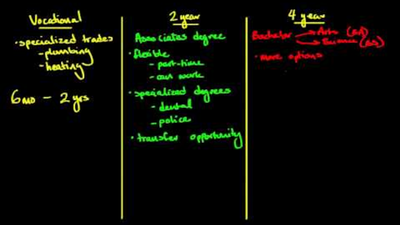 Vocational
• specialized trades
- plumbing
- heating
6 mo - 2 yrs
2 year
Associates degree
• flexible
- part-time
- can work
• specialized degrees
- dental
- police
• transfer opportunity
4 year
Bachelor → Arts (BA)
→ Science (BS)
• more options